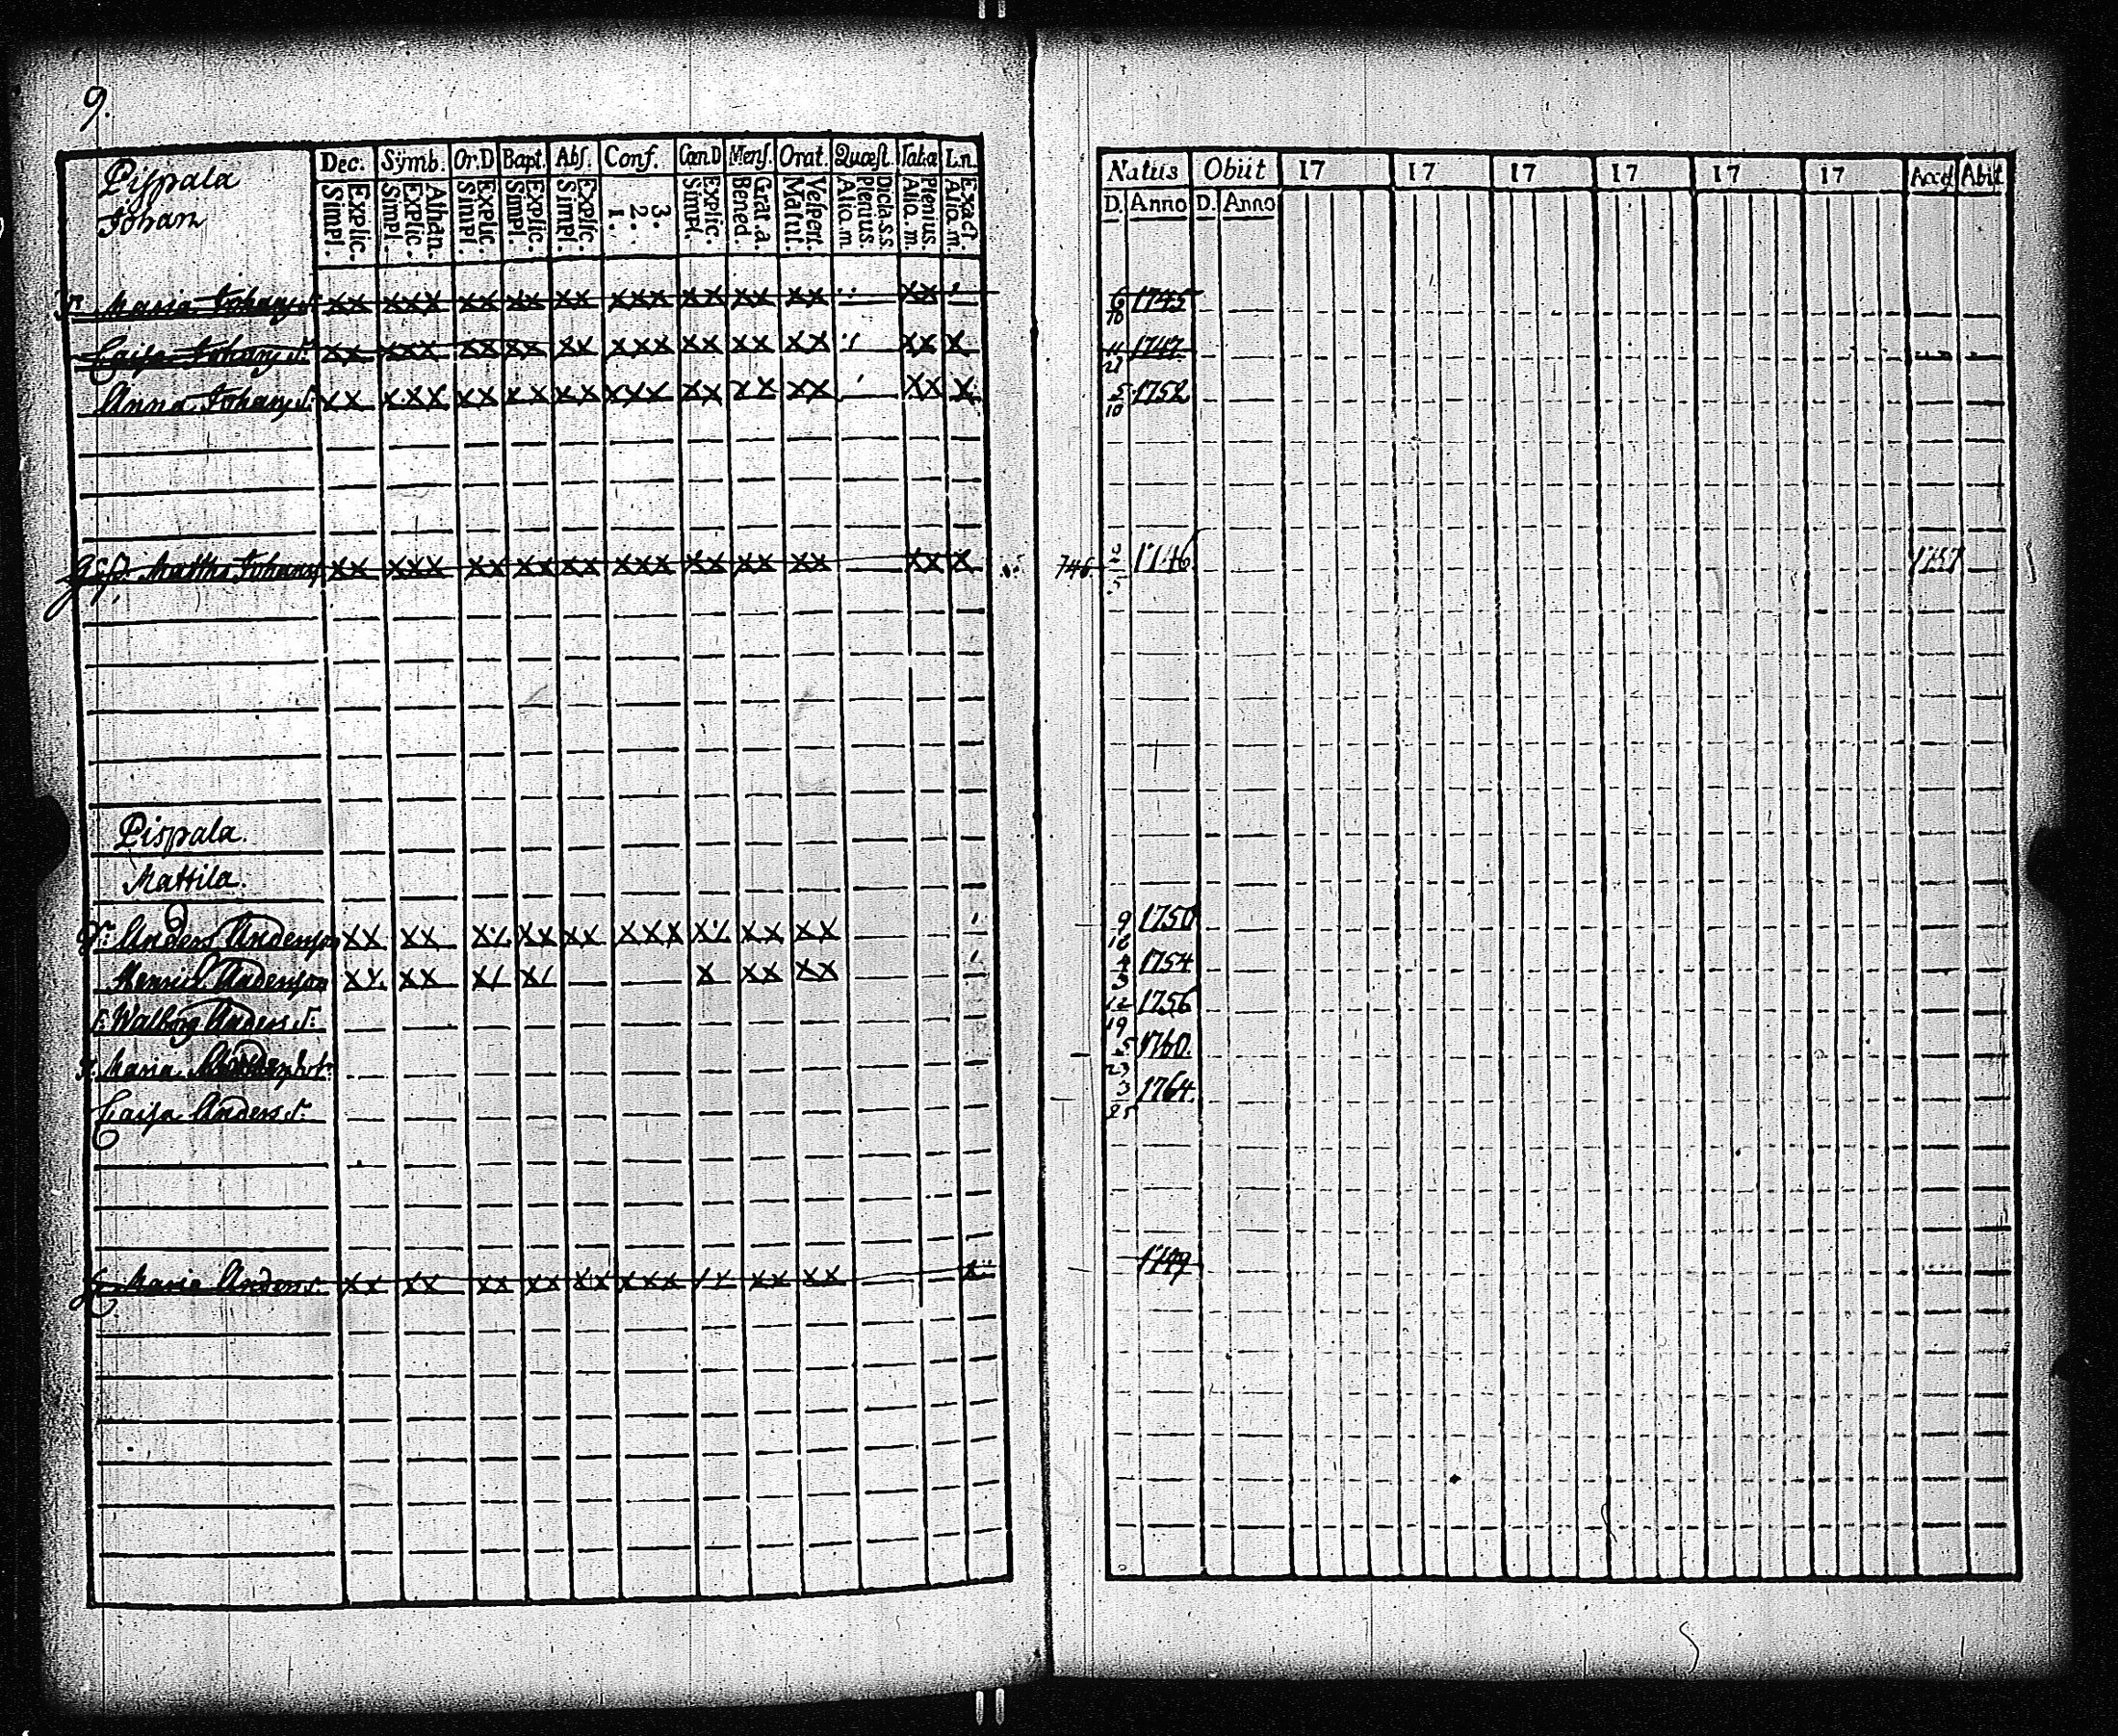 9.
Dec. Symb. Or.D Bapt. Abs. Conf. Cœn.D Mens. Orat. Quæst. Tab.æ L.n.
Natus Obiit 17 17 17 17 17 17 Acces Abiit
Pispala
Johan
Explic. Simpl. Athan. Explic. Simpl. Explic. Simpl. Explic. Simpl. Explic. Simpl. 3. 2. 1. Explic. Simpl. Grat.a. Bened. Vespert. Matut. Dicta.s.s Plenius Alio.m Plenius. Aliq.m. Exact. Aliq.m.
D. Anno D. Anno
Maria Johans dr xx xxx xx xx xx xxx xx xx xx xx 6 10 1745
Caisa Johans d: xx xxx xx xx xx xxx xx xx xx xx x 11 21 1747
Anna Johans d: xx xxx xx xx xx xxx xx xx xx xx x 5 10 1752
Matths Johanss xx xxx xx xx xx xxx xx xx xx xx x 746 1746
Pispala.
Mattila.
Anders Anderson xx xx xx xx xx xxx xx xx xx 9 18 1750
Henric Anderson xx xx xx xx x xx xx 4 3 1754
Walborg Anders d: 12 19 1756
Maria 5 23 1760.
Caisa Anders d: 3 25 1764.
Maria Anders d: xx xx xx xx xx xxx xx xx xx x 1749